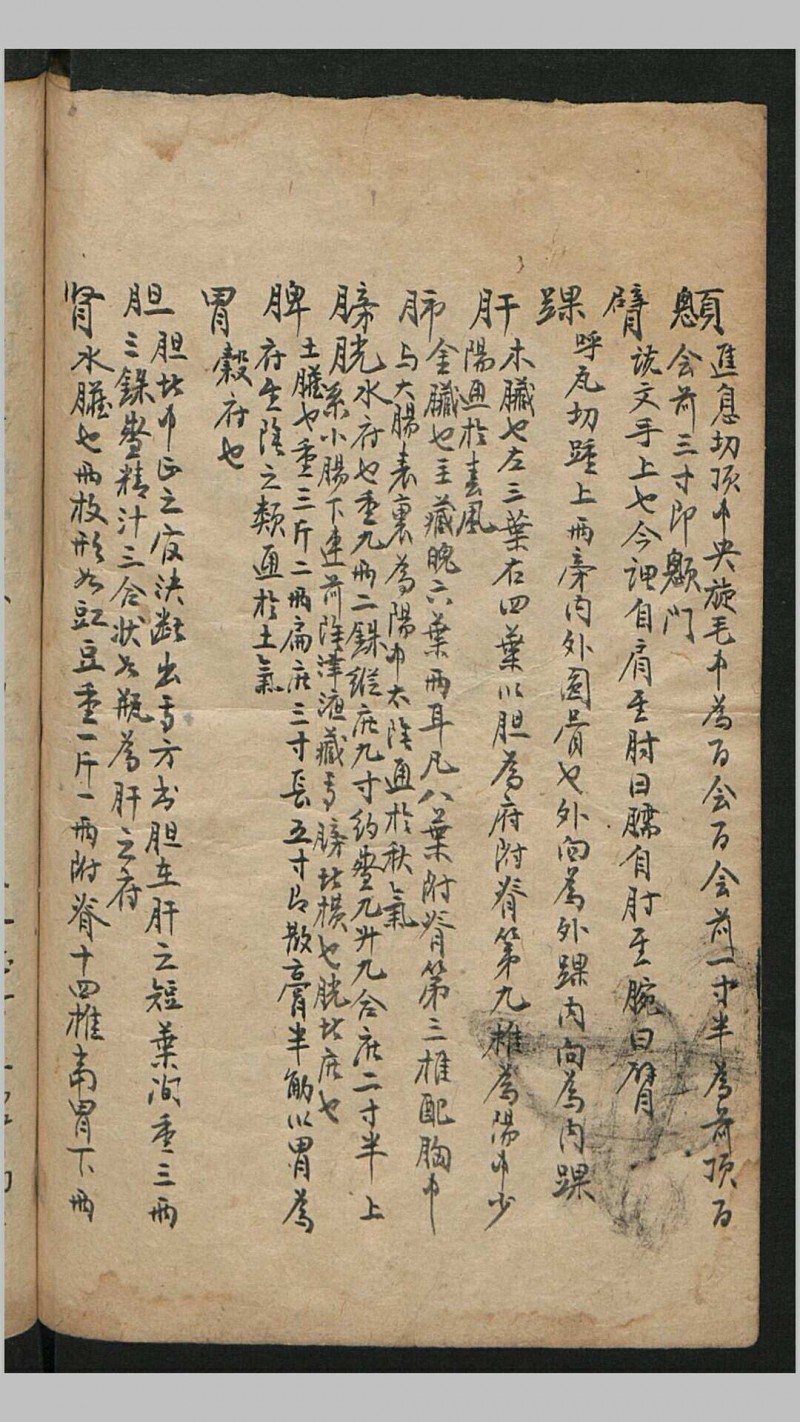 顖 進息切頂中央旋毛中為百会百会前一寸半為前頂百
会前三寸即顖門
臂 説文手上也今謂自肩至肘曰臑自肘至腕曰臂
踝 呼瓦切踵上兩旁内外圓骨也外向為外踝内向為内踝
肝 木臟也左三葉右四葉以胆為府附脊第九椎為陽中少
陽通於春風
肺 金臟也主藏魄六葉兩耳凡八葉附脊第三椎配胸中
与大腸表裏為陽中太陰通於秋氣
膀胱 水府也重九兩二銖縱広九寸約盛九升九合広二寸半上
系小腸下連前陰津液藏焉膀比横也胱比広也
脾 土臟也重三斤二兩扁広三寸長五寸即散膏半觔以胃為
府生陰之類通於土氣
胃 穀府也
胆 胆比中正之官決断出焉方书胆在肝之短葉间重三兩
三銖盛精汁三合状如瓶為肝之府
肾 水臟也兩枚形如豇豆重一斤一兩附脊十四椎當胃下兩